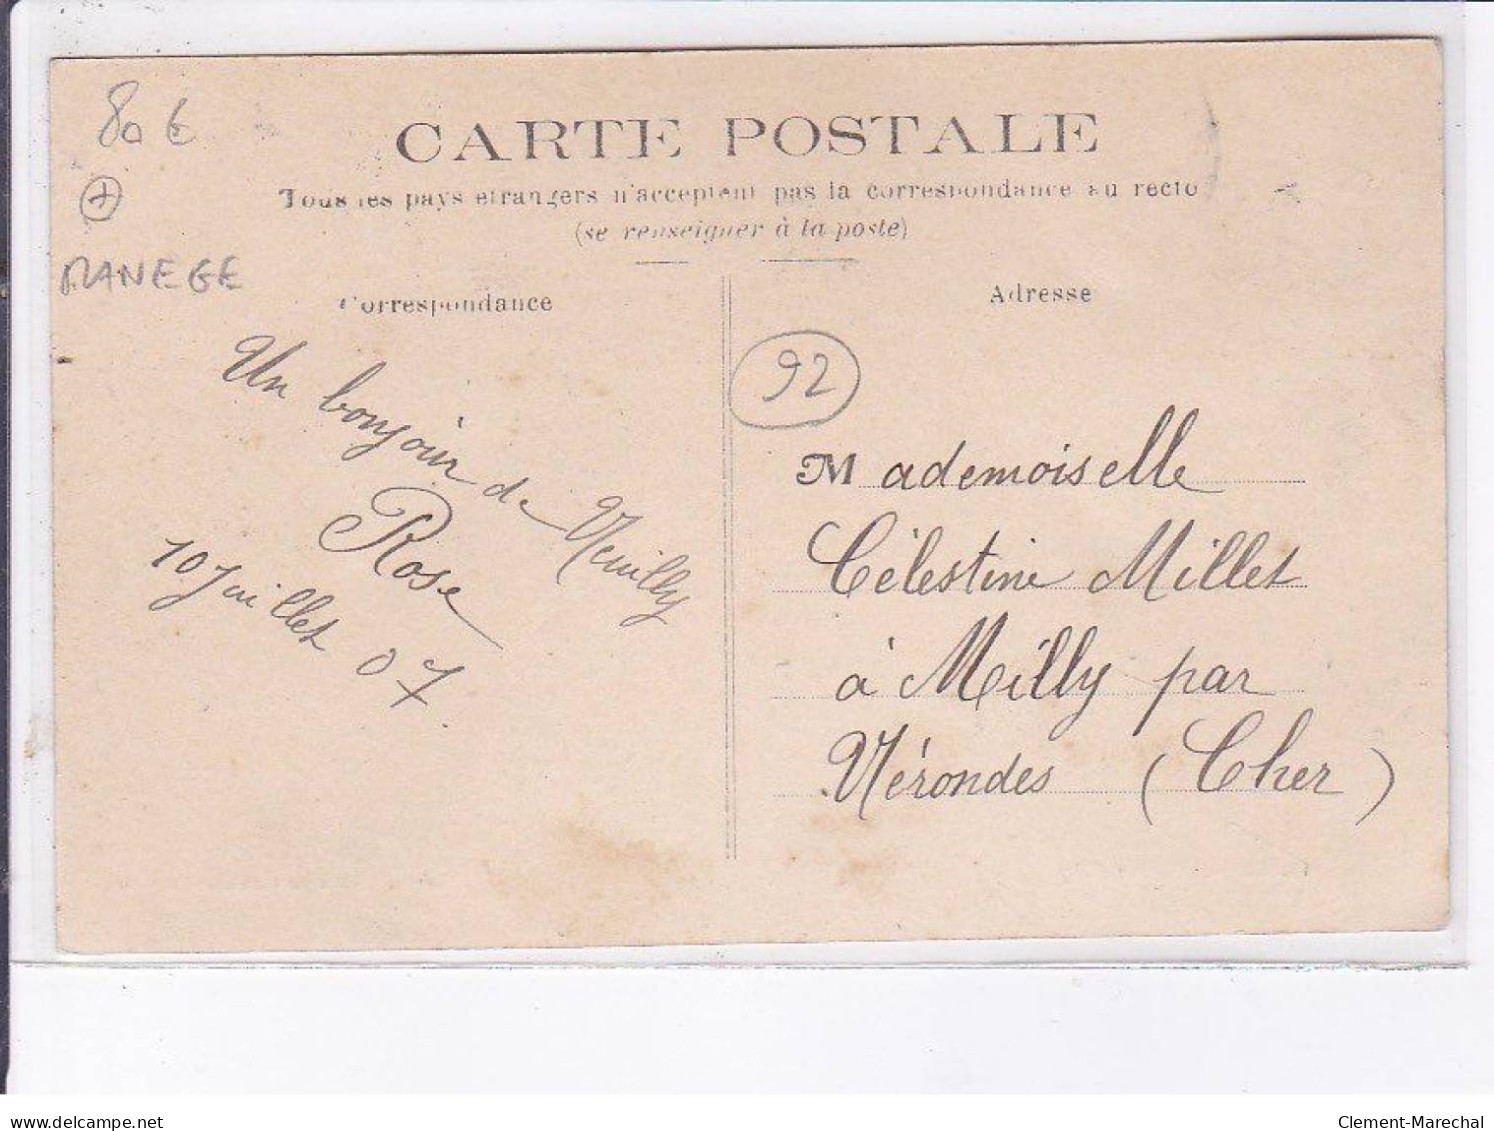 80 €
+
MANEGE
CARTE POSTALE
Tous les pays étrangers n'acceptent pas la correspondance au recto
(se renseigner à la poste)
Correspondance
Un bonjour de Neuilly
Rose
10 Juillet 07.
Adresse
92
Mademoiselle
Célestine Millet
à Milly par
Nérondes (Cher)
www.delcampe.net
Clement-Marechal